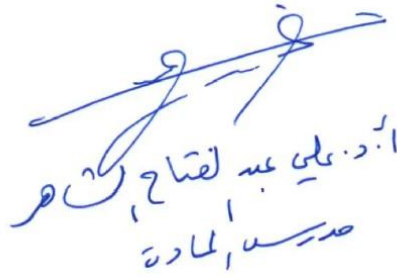 أ.د. علي عبد الفتاح الشاهر
مدرس المادة